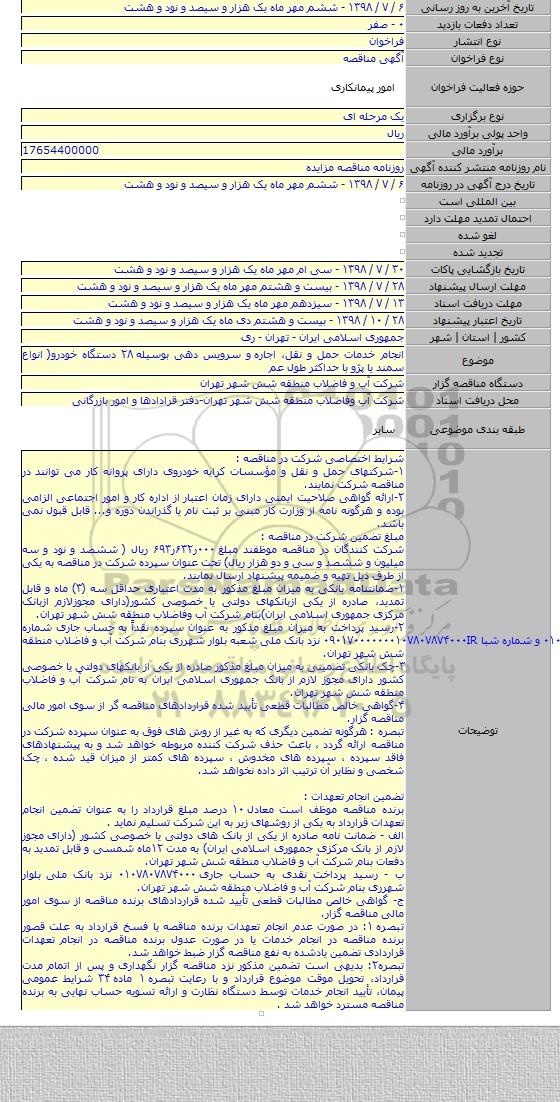 تاریخ آخرین به روز رسانی ۶ / ۷ / ۱۳۹۸ - ششم مهر ماه یک هزار و سیصد و نود و هشت
تعداد دفعات بازدید ۰ - صفر
نوع انتشار فراخوان
نوع فراخوان آگهی مناقصه
حوزه فعالیت فراخوان امور پیمانکاری
نوع برگزاری یک مرحله ای
واحد پولی برآورد مالی ریال
برآورد مالی 17654400000
نام روزنامه منتشر کننده آگهی روزنامه مناقصه مزایده
تاریخ درج آگهی در روزنامه ۶ / ۷ / ۱۳۹۸ - ششم مهر ماه یک هزار و سیصد و نود و هشت
بین المللی است
احتمال تمدید مهلت دارد
لغو شده
تجدید شده
تاریخ بازگشایی پاکات ۳۰ / ۷ / ۱۳۹۸ - سی ام مهر ماه یک هزار و سیصد و نود و هشت
مهلت ارسال پیشنهاد ۲۸ / ۷ / ۱۳۹۸ - بیست و هشتم مهر ماه یک هزار و سیصد و نود و هشت
مهلت دریافت اسناد ۱۳ / ۷ / ۱۳۹۸ - سیزدهم مهر ماه یک هزار و سیصد و نود و هشت
تاریخ اعتبار پیشنهاد ۲۸ / ۱۰ / ۱۳۹۸ - بیست و هشتم دی ماه یک هزار و سیصد و نود و هشت
کشور | استان | شهر جمهوری اسلامی ایران - تهران - ری
موضوع انجام خدمات حمل و نقل، اجاره و سرویس دهی بوسیله ۲۸ دستگاه خودرو( انواع
سمند یا پژو با حداکثر طول عم
دستگاه مناقصه گزار شرکت آب و فاضلاب منطقه شش شهر تهران
محل دریافت اسناد شرکت آب وفاضلاب منطقه شش شهر تهران-دفتر قرادادها و امور بازرگانی
طبقه بندی موضوعی سایر
توضیحات
شرایط اختصاصی شرکت در مناقصه :
۱-شرکتهای حمل و نقل و مؤسسات کرایه خودروی دارای پروانه کار می توانند در
مناقصه شرکت نمایند.
۲-ارائه گواهی صلاحیت ایمنی دارای زمان اعتبار از اداره کار و امور اجتماعی الزامی
بوده و هرگونه نامه از وزارت کار مبنی بر ثبت نام یا گذراندن دوره و... قابل قبول نمی
باشد.
مبلغ تضمین شرکت در مناقصه :
شرکت کنندگان در مناقصه موظفند مبلغ ۶۹۳٫۶۳۲٫۰۰۰ ریال ( ششصد و نود و سه
میلیون و ششصد و سی و دو هزار ریال) تحت عنوان سپرده شرکت در مناقصه به یکی
از طرق ذیل تهیه و ضمیمه پیشنهاد ارسال نمایند.
۱-ضمانتنامه بانکی به میزان مبلغ مذکور به مدت اعتباری حداقل سه (۳) ماه و قابل
تمدید، صادره از یکی ازبانکهای دولتی یا خصوصی کشور(دارای مجوزلازم ازبانک
مرکزی جمهوری اسلامی ایران)بنام شرکت آب وفاضلاب منطقه شش شهر تهران.
۲-رسید پرداخت به میزان مبلغ مذکور به عنوان سپرده نقدا به حساب جاری شماره
و شماره شبا IR نزد بانک ملی شعبه بلوار شهرری بنام شرکت آب و فاضلاب منطقه
شش شهر تهران.
۳-چک بانکی تضمینی به میزان مبلغ مذکور صادره از یکی از بانکهای دولتی یا خصوصی
کشور دارای مجوز لازم از بانک جمهوری اسلامی ایران به نام شرکت آب و فاضلاب
منطقه شش شهر تهران.
۴-گواهی خالص مطالبات قطعی تأیید شده قراردادهای مناقصه گر از سوی امور مالی
مناقصه گزار.
تبصره : هرگونه تضمین دیگری که به غیر از روش های فوق به عنوان سپرده شرکت در
مناقصه ارائه گردد ، باعث حذف شرکت کننده مربوطه خواهد شد و به پیشنهادهای
فاقد سپرده ، سپرده های مخدوش ، سپرده های کمتر از میزان قید شده ، چک
شخصی و نظایر آن ترتیب اثر داده نخواهد شد.
تضمین انجام تعهدات :
برنده مناقصه موظف است معادل ۱۰ درصد مبلغ قرارداد را به عنوان تضمین انجام
تعهدات قرارداد به یکی از روشهای زیر به این شرکت تسلیم نماید .
الف - ضمانت نامه صادره از یکی از بانک های دولتی یا خصوصی کشور (دارای مجوز
لازم از بانک مرکزی جمهوری اسلامی ایران) به مدت ۱۲ماه شمسی و قابل تمدید به
دفعات بنام شرکت آب و فاضلاب منطقه شش شهر تهران.
ب - رسید پرداخت نقدی به حساب جاری ۰۱۰۷۸۰۷۸۷۴۰۰۰ نزد بانک ملی بلوار
شهرری بنام شرکت آب و فاضلاب منطقه شش شهر تهران.
ج- گواهی خالص مطالبات قطعی تأیید شده قراردادهای برنده مناقصه از سوی امور
مالی مناقصه گزار.
تبصره ۱: در صورت عدم انجام تعهدات برنده مناقصه یا فسخ قرارداد به علت قصور
برنده مناقصه در انجام خدمات یا در صورت عدول برنده مناقصه در انجام تعهدات
قراردادی تضمین یادشده به نفع مناقصه گزار ضبط خواهد شد.
تبصره۲: بدیهی است تضمین مذکور نزد مناقصه گزار نگهداری و پس از اتمام مدت
قرارداد، تحویل موقت موضوع قرارداد و با رعایت تبصره ۱ ماده ۳۴ شرایط عمومی
پیمان، تأیید انجام خدمات توسط دستگاه نظارت و ارائه تسویه حساب نهایی به برنده
مناقصه مسترد خواهد شد .